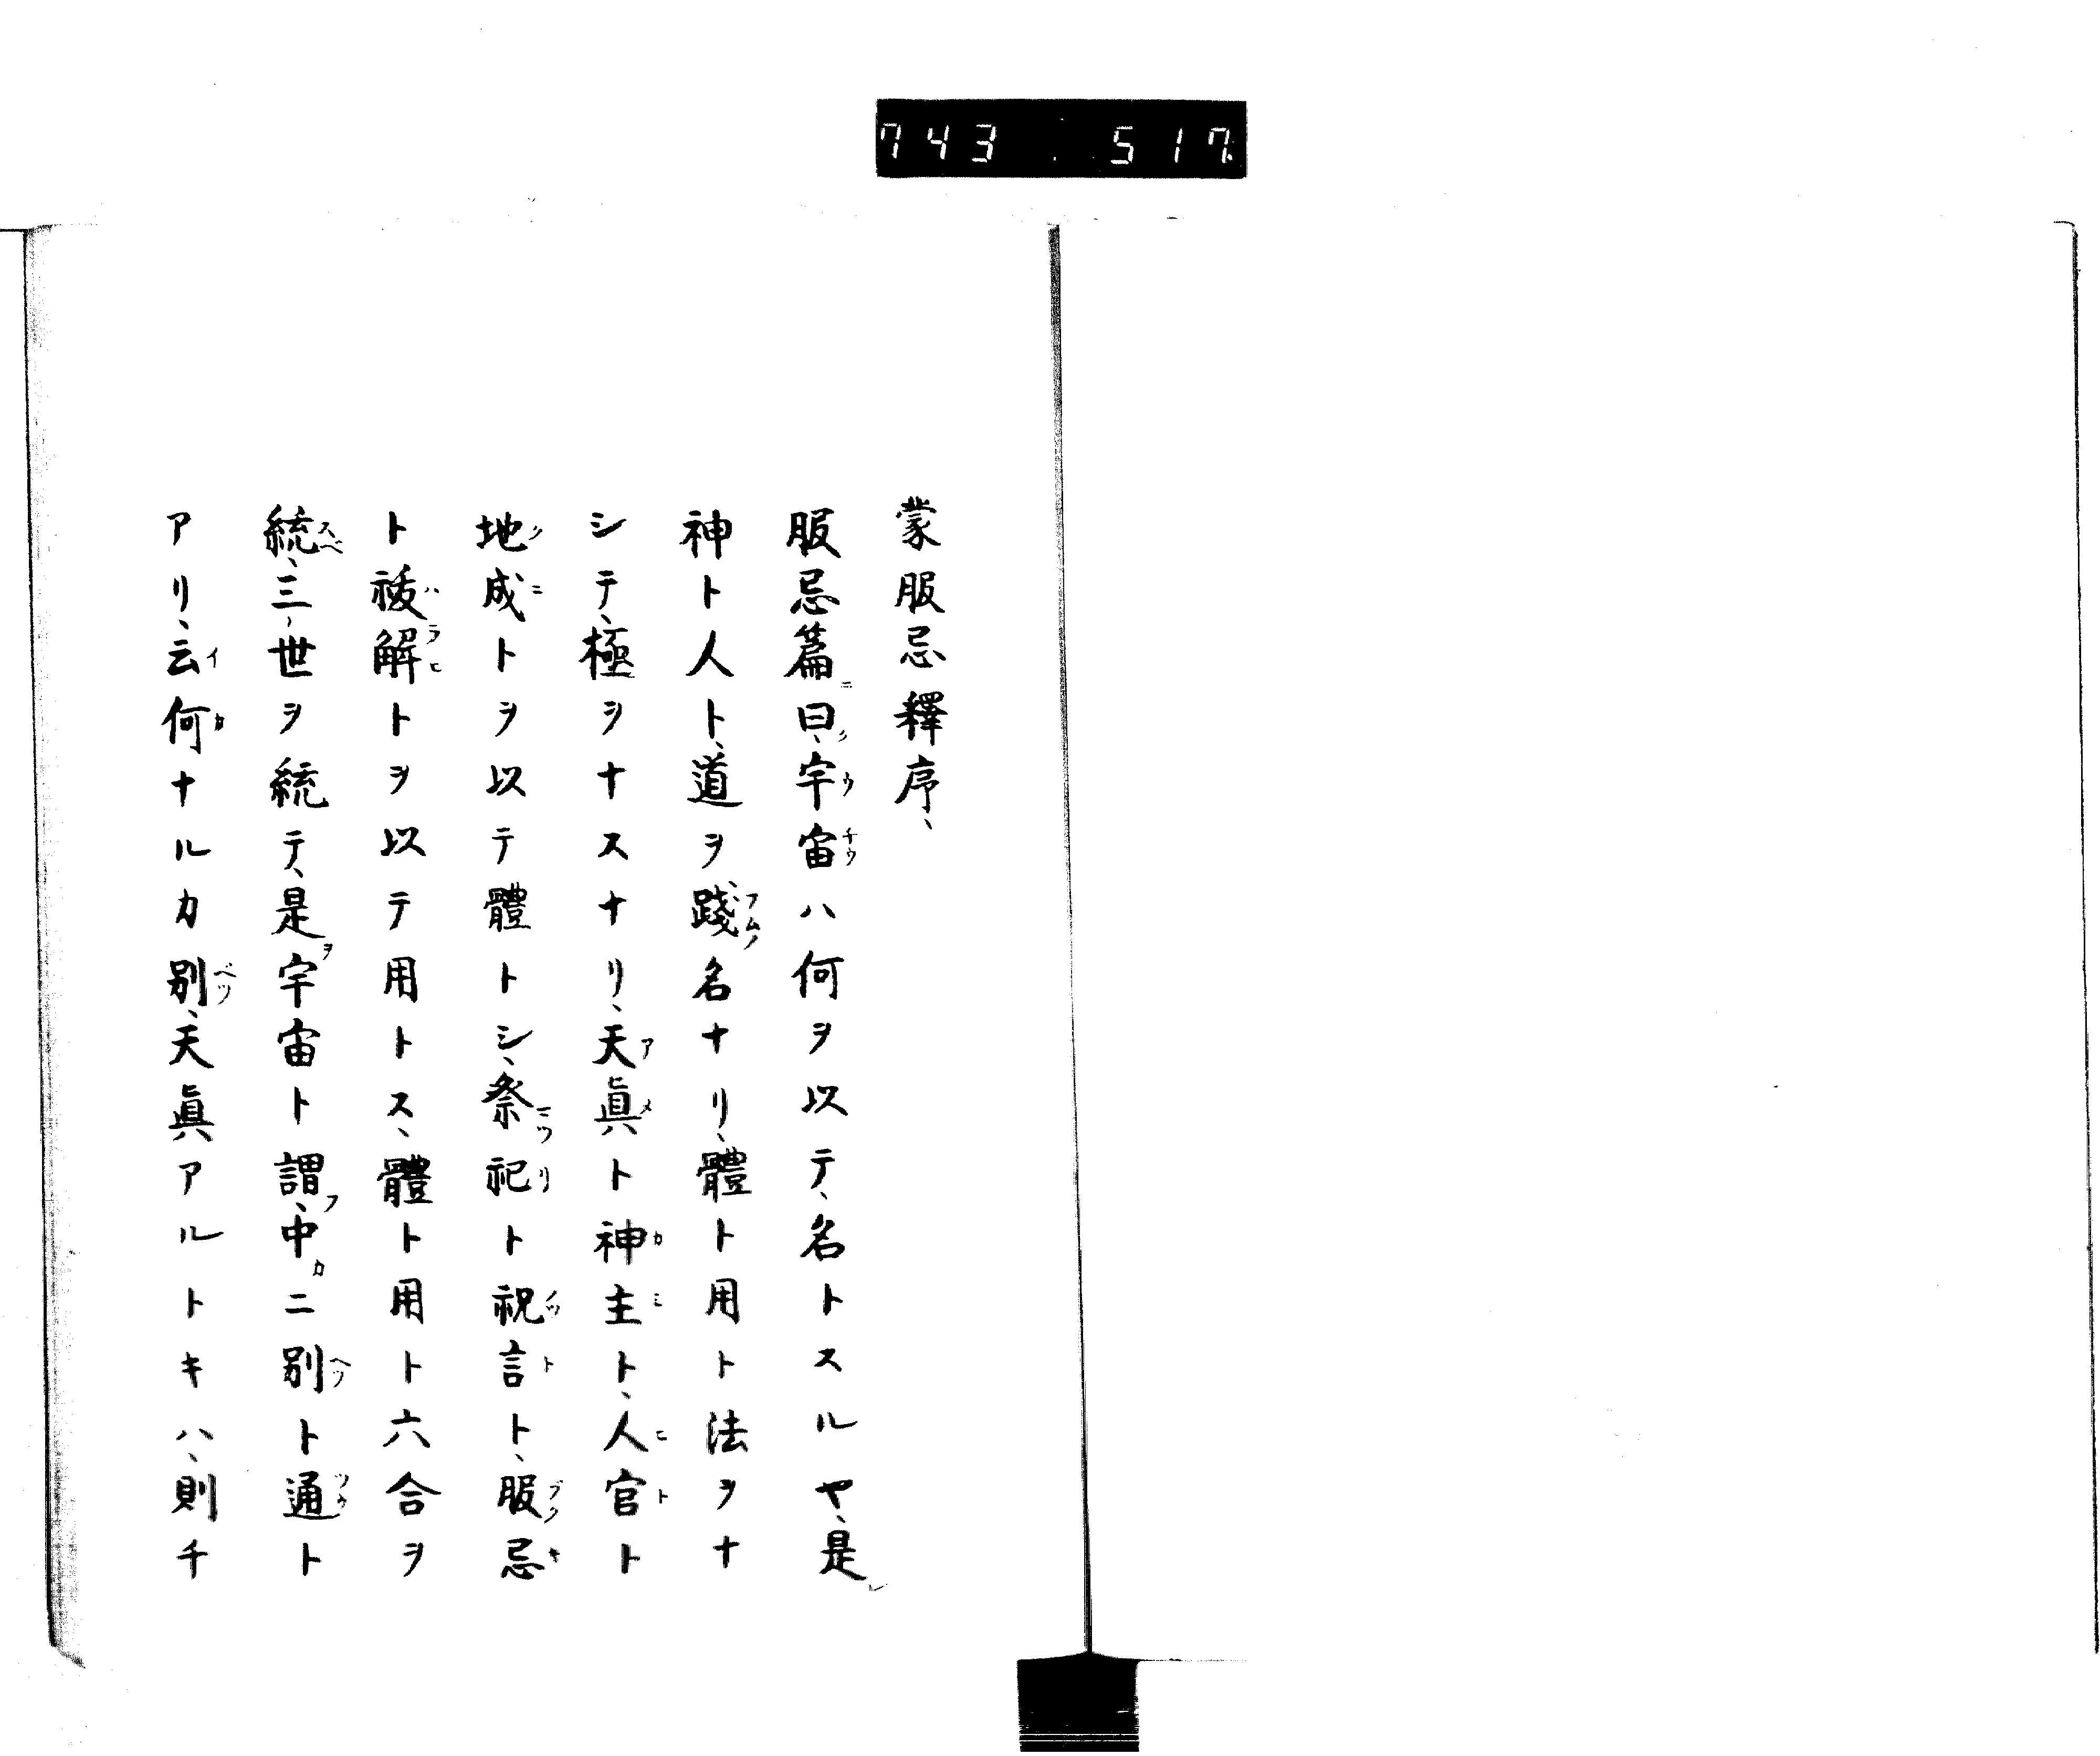 743 517
蒙服忌釋序、
服忌篇ニ曰ク、宇宙ハ何ヲ以テ、名トスルヤ、是レ
神ト人ト、道ヲ踐ムノ名ナリ、體ト用ト法ヲナ
シテ、極ヲナスナリ、天眞ト神主ト、人官ト
地成トヲ以テ體トシ、祭祀ト祝言ト、服忌
ト祓解トヲ以テ用トス、體ト用ト六合ヲ
統ベ、三世ヲ統テ、是ヲ宇宙ト謂フ、中カニ別ト通ト
アリ、云何ナルカ別、天眞アルトキハ、則チ